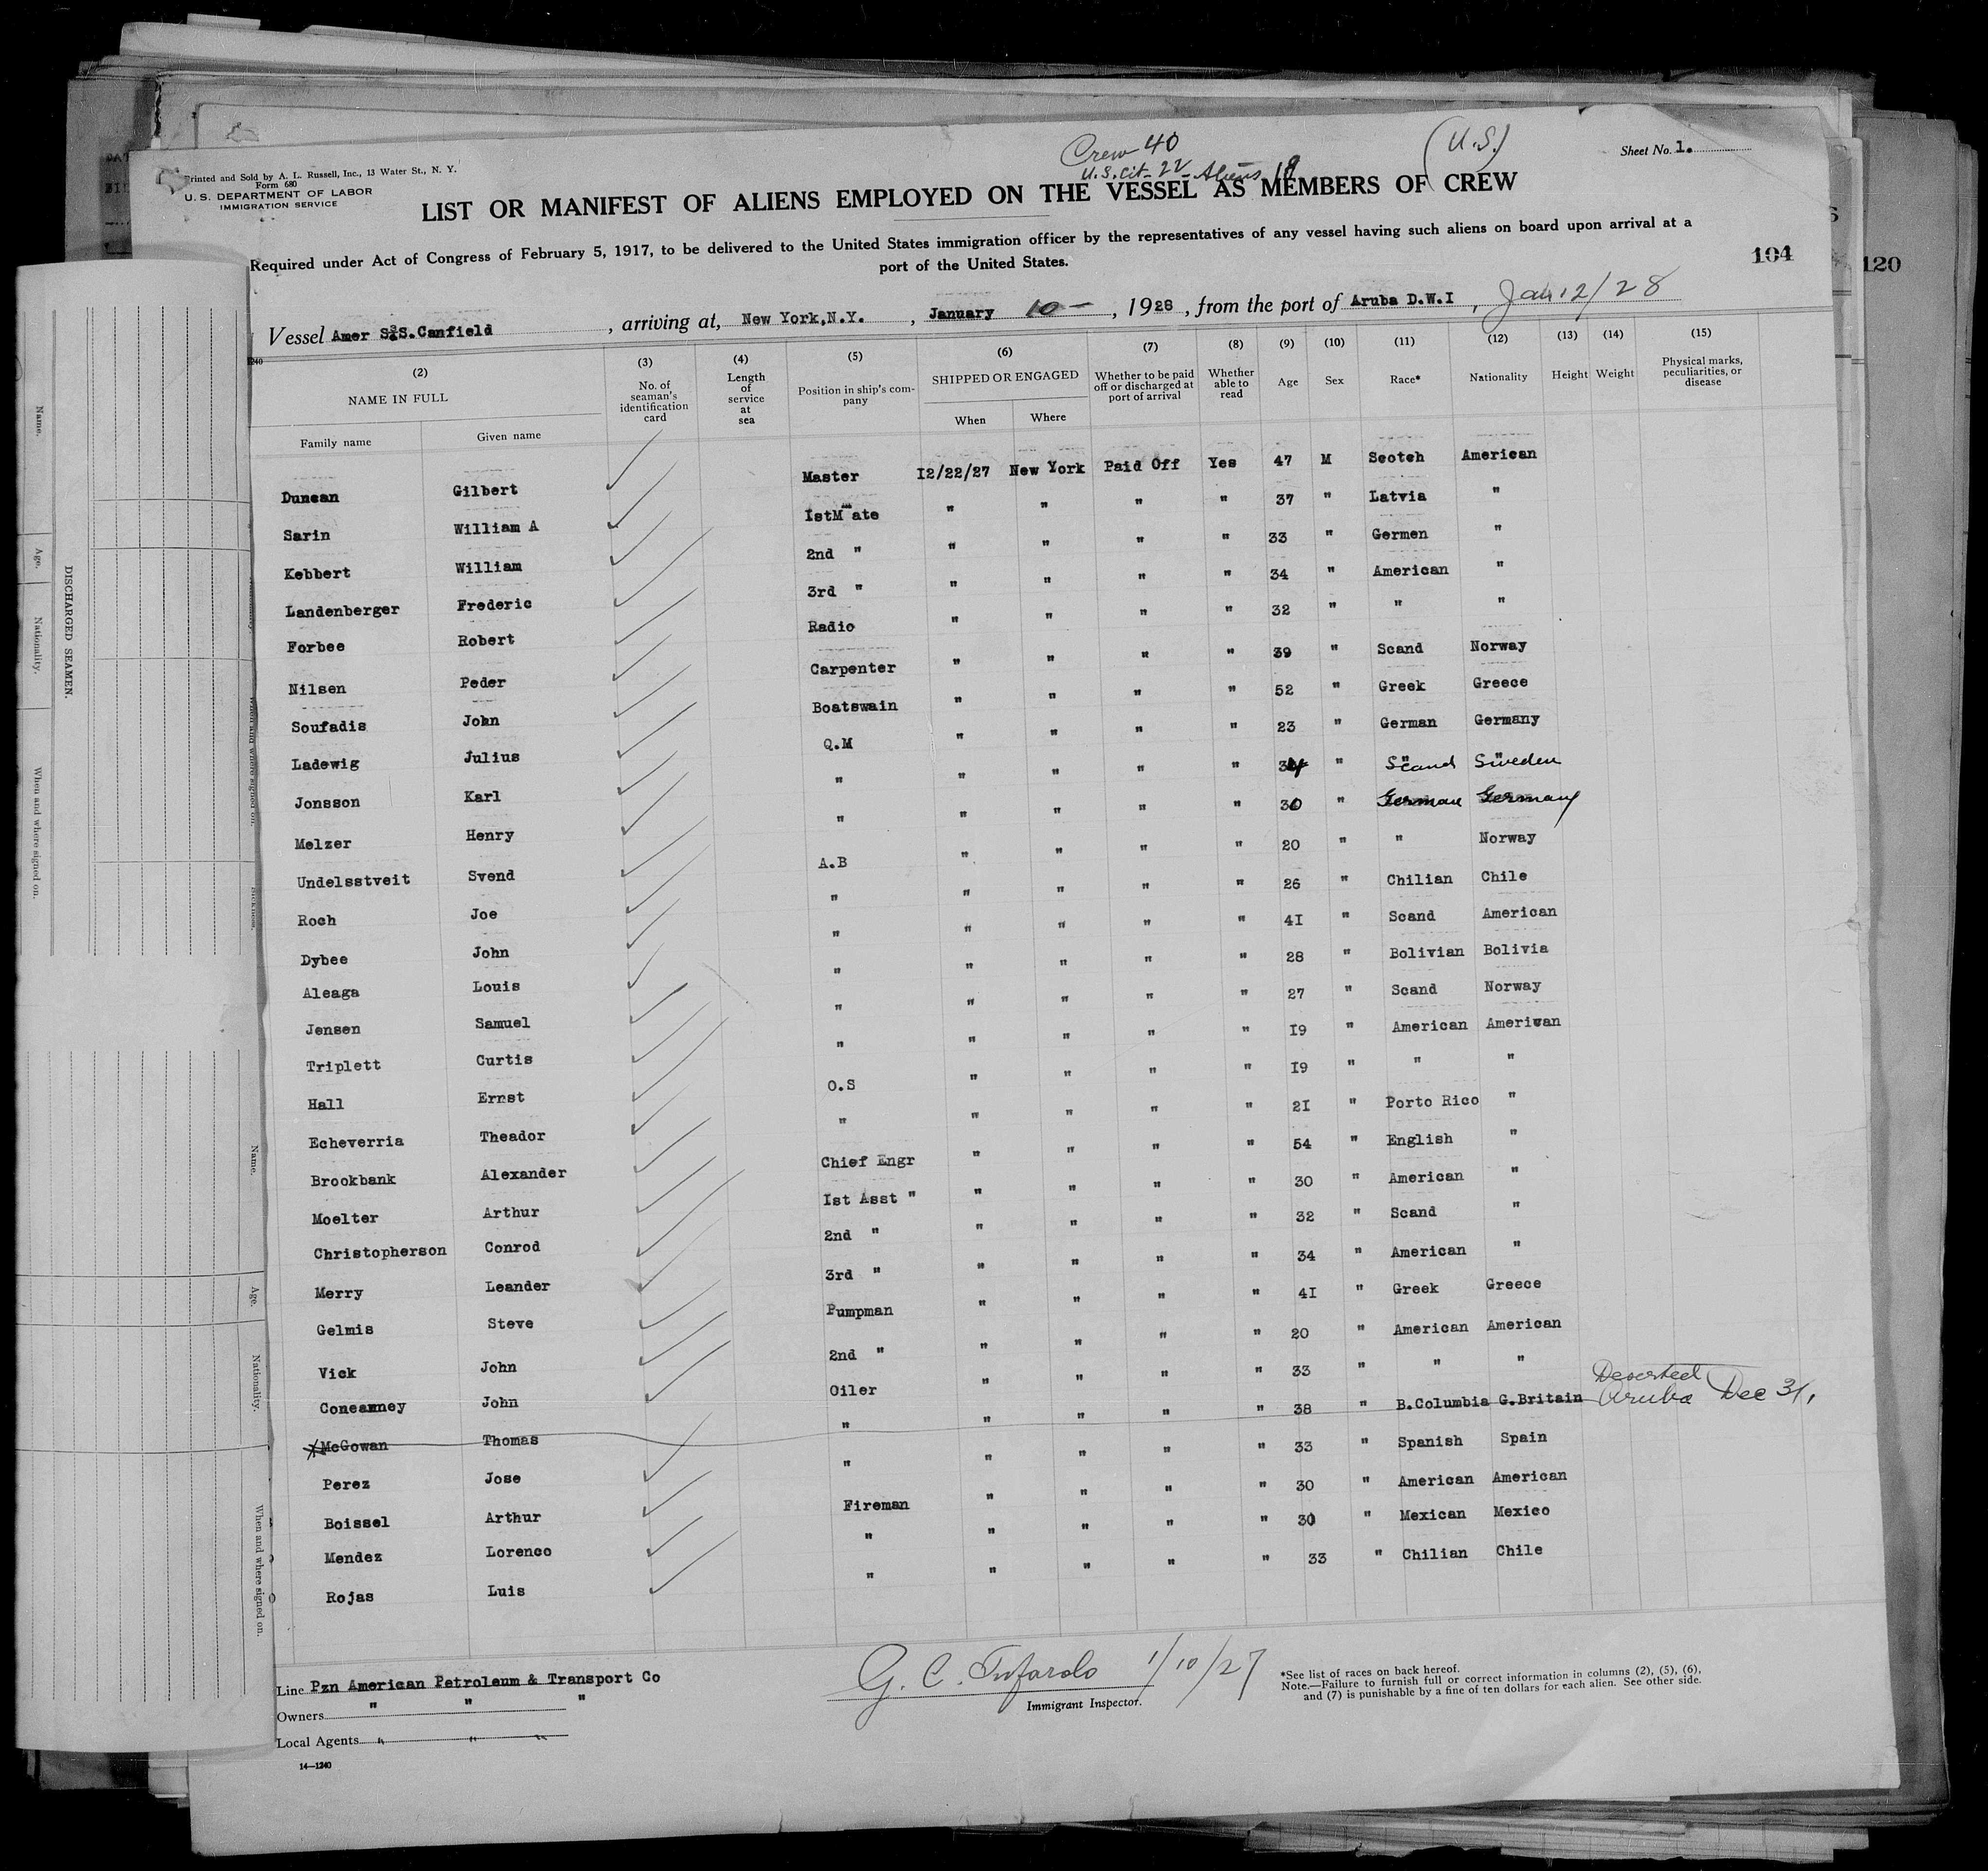 Crew 40
U.S. cit- 22 Aliens 18
(U.S.)
Sheet No. 1.
Printed and Sold by A. L. Russell, Inc., 13 Water St., N. Y.
Form 680
U. S. DEPARTMENT OF LABOR
IMMIGRATION SERVICE
LIST OR MANIFEST OF ALIENS EMPLOYED ON THE VESSEL AS MEMBERS OF CREW
Required under Act of Congress of February 5, 1917, to be delivered to the United States immigration officer by the representatives of any vessel having such aliens on board upon arrival at a
port of the United States.
104
120
Vessel Amer S.S.Canfield , arriving at, New York,N.Y. , January 10 — , 1928 , from the port of Aruba D.W.I , Jan 12/28
(2) (3) (4) (5) (6) (7) (8) (9) (10) (11) (12) (13) (14) (15)
NAME IN FULL
Family name Given name
No. of seaman's identification card
Length of service at sea
Position in ship's company
SHIPPED OR ENGAGED
When Where
Whether to be paid off or discharged at port of arrival
Whether able to read
Age
Sex
Race*
Nationality
Height
Weight
Physical marks, peculiarities, or disease
Duncan Gilbert Master 12/22/27 New York Paid Off Yes 47 M Scotch American
Sarin William A IstM ate " " " " 37 " Latvia "
Kebbert William 2nd " " " " " 33 " Germen "
Landenberger Frederic 3rd " " " " " 34 " American "
Forbee Robert Radio " " " " 32 " " "
Nilsen Peder Carpenter " " " " 39 " Scand Norway
Soufadis John Boatswain " " " " 52 " Greek Greece
Ladewig Julius Q.M " " " " 23 " German Germany
Jonsson Karl " " " " " 34 " Scand Sweden
Melzer Henry " " " " " 30 " German Germany
Undelsstveit Svend A.B " " " " 20 " " Norway
Roch Joe " " " " " 26 " Chilian Chile
Dybee John " " " " " 4I " Scand American
Aleaga Louis " " " " " 28 " Bolivian Bolivia
Jensen Samuel " " " " " 27 " Scand Norway
Triplett Curtis " " " " " I9 " American Ameriwan
Hall Ernst O.S " " " " I9 " " "
Echeverria Theador " " " " " 2I " Porto Rico "
Brookbank Alexander Chief Engr " " " " 54 " English "
Moelter Arthur Ist Asst " " " " " 30 " American "
Christopherson Conrod 2nd " " " " " 32 " Scand "
Merry Leander 3rd " " " " " 34 " American "
Gelmis Steve Pumpman " " " " 4I " Greek Greece
Vick John 2nd " " " " " 20 " American American
Coneanney John Oiler " " " " 33 " " "
McGowan Thomas " " " " " 38 " B.Columbia G.Britain Deserted Aruba Dec 31,
Perez Jose " " " " " 33 " Spanish Spain
Boissel Arthur Fireman " " " " 30 " American American
Mendez Lorenco " " " " " 30 " Mexican Mexico
Rojas Luis " " " " " 33 " Chilian Chile
Line Pzn American Petroleum & Transport Co
Owners " " "
Local Agents " " "
14—1240
G. C. Tufarolo 1/10/27
Immigrant Inspector.
*See list of races on back hereof.
Note.—Failure to furnish full or correct information in columns (2), (5), (6),
and (7) is punishable by a fine of ten dollars for each alien. See other side.
DISCHARGED SEAMEN.
Name.
Age.
Nationality.
When and where signed on.
Name.
Age.
Nationality.
When and where signed on.